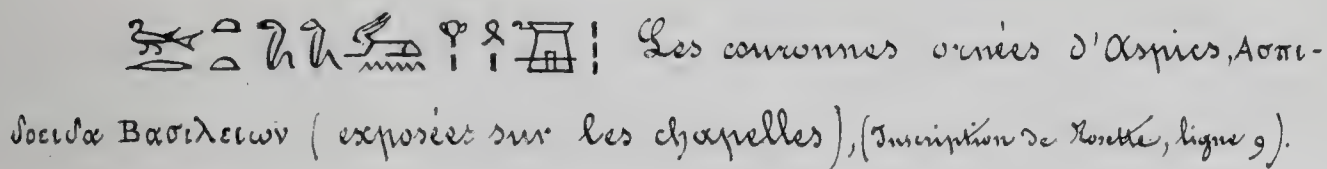 Les couronnes ornées d'Aspics, Ασπι-
δοειδα Βασιλειων (exposées sur les chapelles), (Inscription de Rosette, ligne 9).